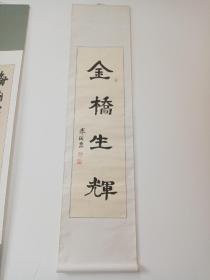 金橋生輝